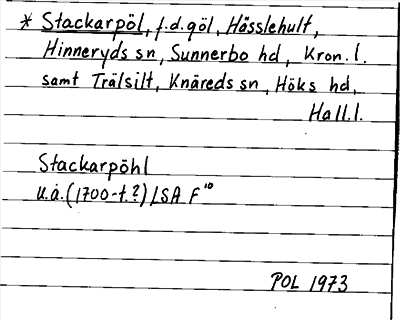 * Stackarpöl, f.d.göl, Hässlehult,
Hinneryds sn, Sunnerbo hd, Kron.l.
samt Trälsilt, Knäreds sn, Höks hd,
Hall.l.
Stackarpöhl
u.å.(1700-t.?) LSA F¹⁰
POL 1973